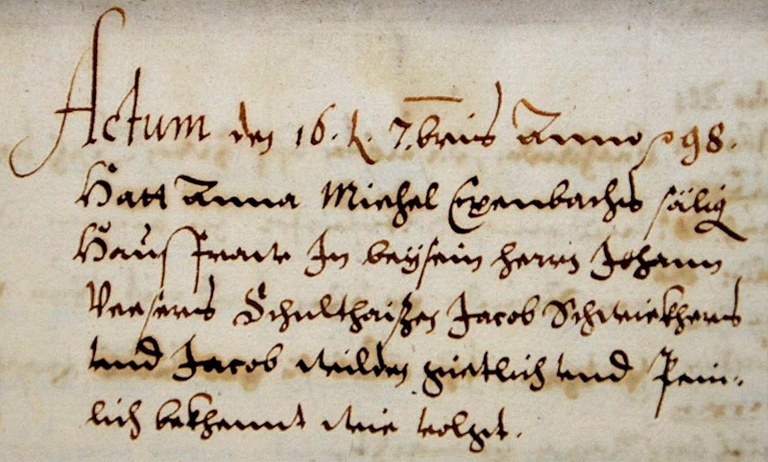 Actum den 16. t. 7.bris Anno p 98.
Hatt Anna Michel Exenbachs sälig
Haussfraw In beysein herrn Johann
Veesers Schulthaißen Jacob Schwickhers
vnd Jacob weilden gietlich vnd Pein-
lich bekhennt wie volgt.